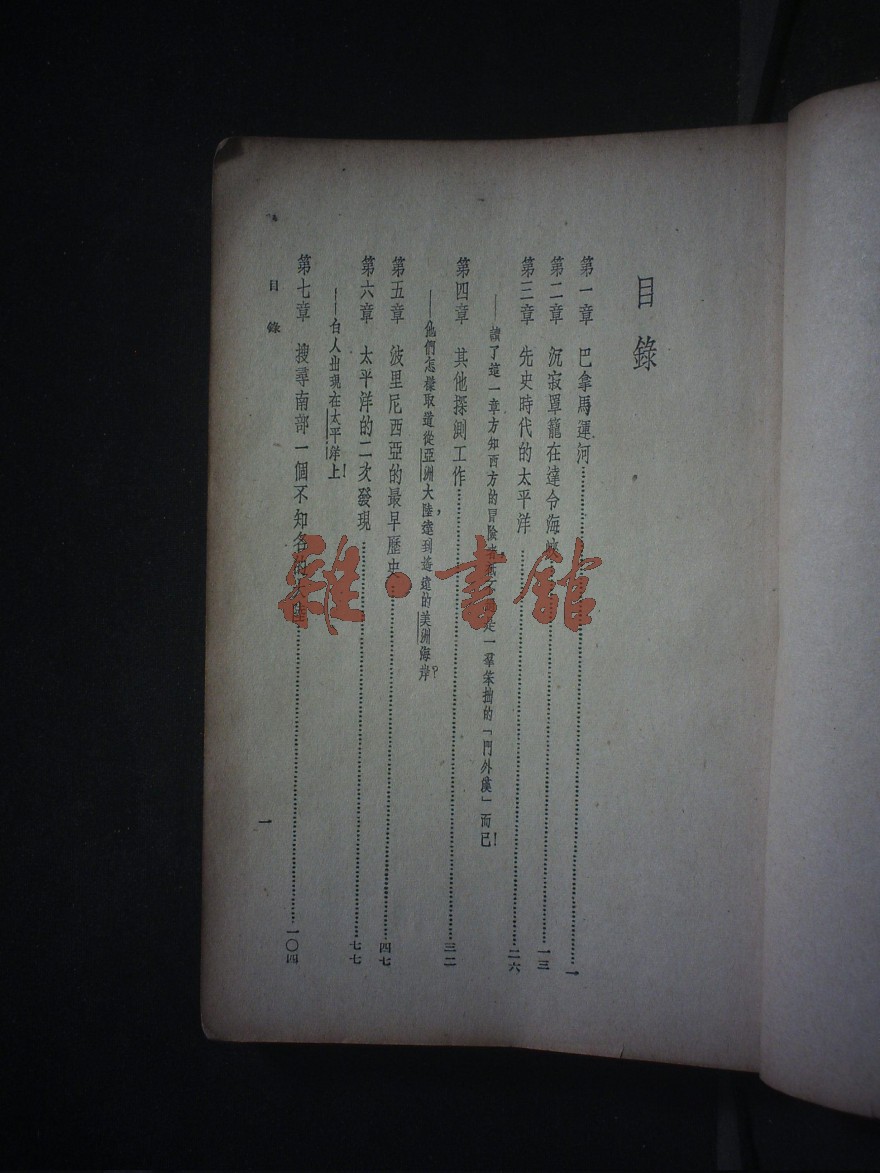 目錄
第一章 巴拿馬運河……一
第二章 沉寂罩籠在達令海……一三
第三章 先史時代的太平洋……二六
——讀了這一章方知西方的冒險 是一羣笨拙的「門外漢」而已!
第四章 其他探測工作……三二
——他們怎樣取道從亞洲大陸,遠到遙遠的美洲海岸?
第五章 波里尼西亞的最早歷史……四七
第六章 太平洋的二次發現……七七
——白人出現在太平洋上!
第七章 搜尋南部一個不知名的大陸……一〇四
目錄
一
雜·書館